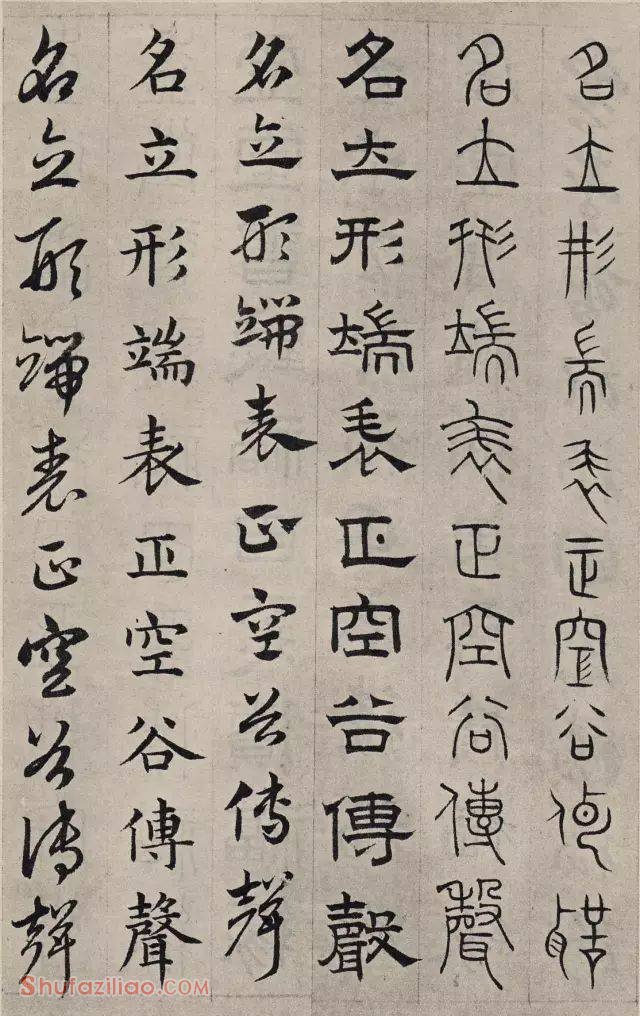 名立形端表正空谷傳聲
名立形端表正空谷傳聲
名立形端表正空谷傳聲
名立形端表正空谷傳聲
名立形端表正空谷傳聲
名立形端表正空谷傳聲
Shufaziliao.com